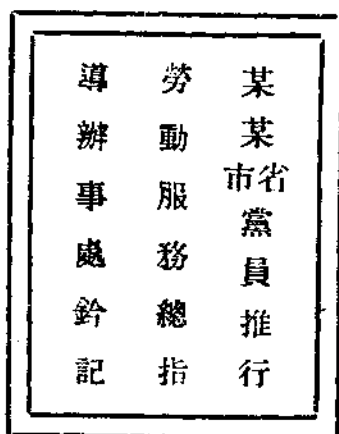 某某省市黨員推行
勞動服務總指
導辦事處鈐記